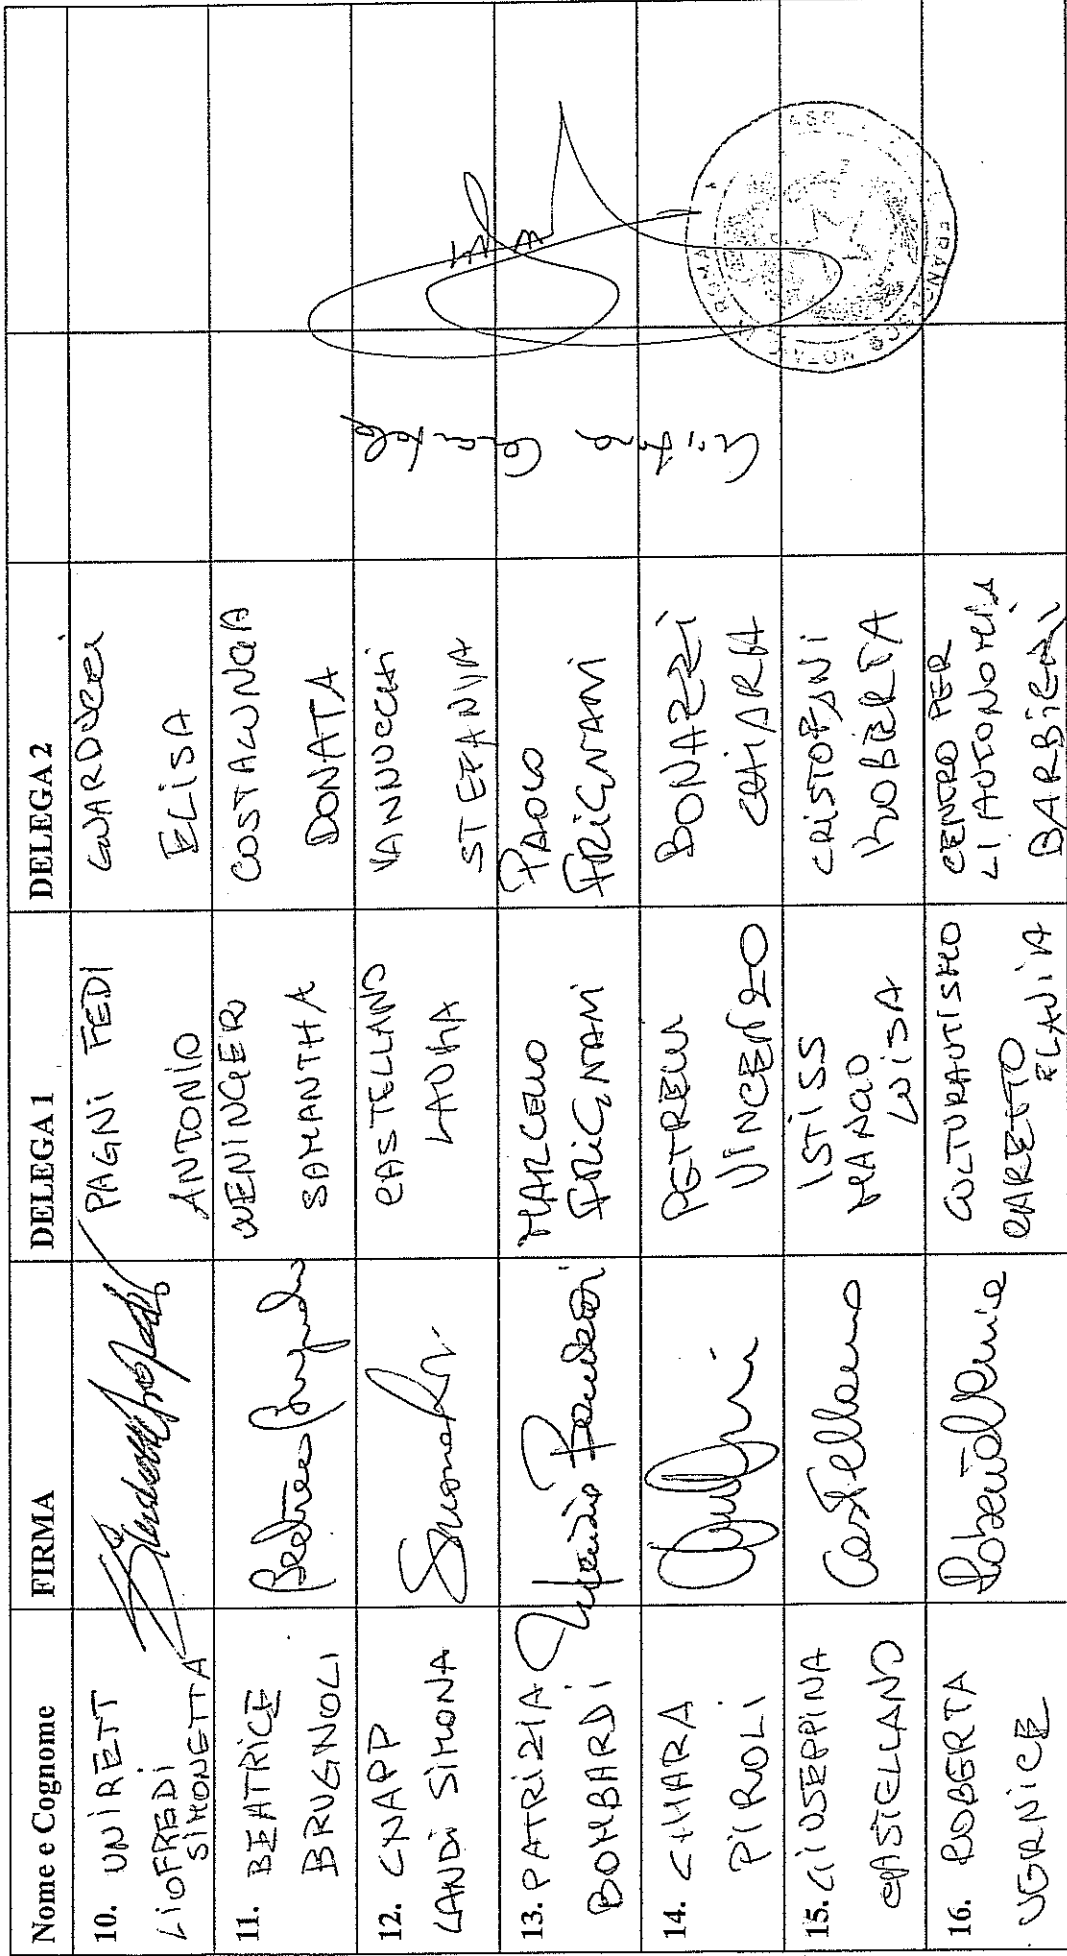 Nome e Cognome FIRMA DELEGA 1 DELEGA 2
10. UNIRETT
LIOFREDI
SIMONETTA
PAGNI FEDI
ANTONIO
GUARDUCCI
ELISA
11. BEATRICE
BRUGNOLI
Beatrice Brugnoli
WENINGER
SAMANTHA
COSTALUNGA
DONATA
12. CNAPP
LANDI SIMONA
CASTELLANO
LAURA
VANNUCCHI
STEFANIA
13. PATRIZIA
BOMBARDI
MARCELLO
FRIGNANI
PAOLO
FRIGNANI
14. CHIARA
PIROLI
PETRELLI
VINCENZO
BONAZZI
CHIARA
15. GIUSEPPINA
CASTELLANO
Castellano
ISTISS
MANGO
LUISA
CRISTOFANI
ROBERTA
16. ROBERTA
VERNICE
Roberta Vernice
CULTURAUTISMO
CARETTO
FLAVIA
CENTRO PER
L'AUTONOMIA
BARBIERI
NOTAIO
ROMA